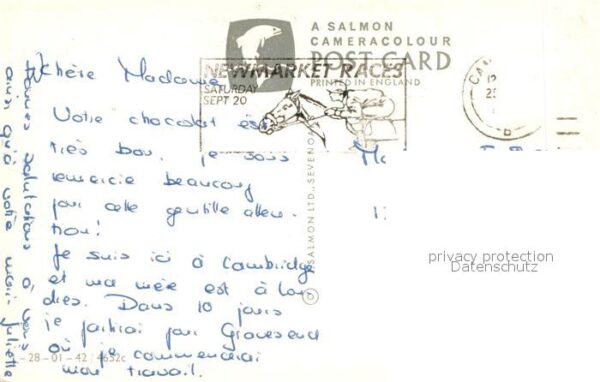 A SALMON
CAMERACOLOUR
POST CARD
PRINTED IN ENGLAND
NEWMARKET RACES
SATURDAY
SEPT 20
Chère Madame
Votre chocolat est
très bon. je vous
remercie beaucoup
pour cette gentille atten-
tion!
Je suis ici à Cambridge
et ma mère est à Lon-
dres. Dans 10 jours
je partirai pour Gravesend
où je commencerai
mon travail.
Bonnes salutations à vous
ainsi qu'à votre mari Juliette
SALMON LTD., SEVENO
- 28 - 01 - 42 / 4652c
privacy protection
Datenschutz